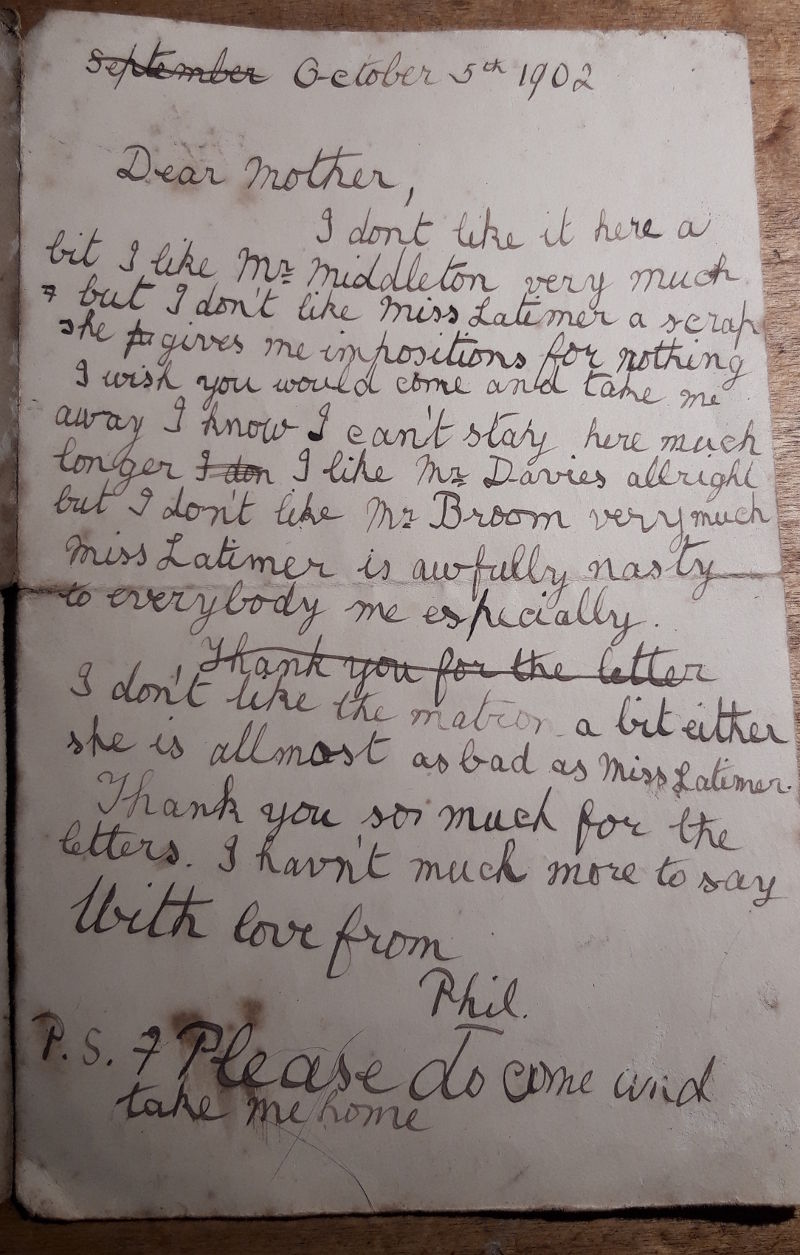 September October 5th 1902
Dear Mother,
I dont like it here a
bit I like Mr Middleton very much
but I don't like Miss Latimer a scrap
she gives me impositions for nothing
I wish you would come and take me
away I know I can't stay here much
longer I don I like Mr Davies allright
but I don't like Mr Broom very much
Miss Latimer is awfully nasty
to everybody me especially.
Thank you for the letter
I don't like the matron a bit either
she is allmost as bad as Miss Latimer.
Thank you so much for the
letters. I havn't much more to say
With love from
Phil.
P.S. Please do come and
take me home